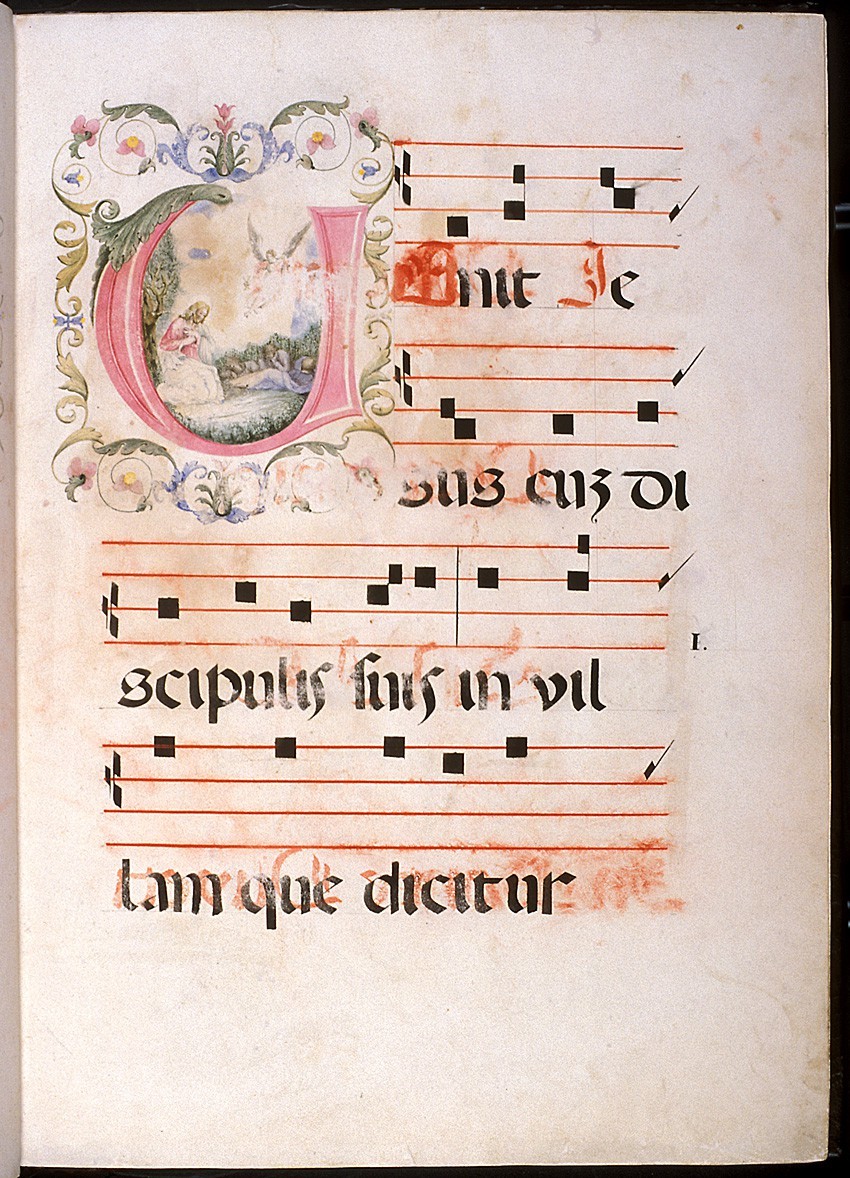 VEnit Je
sus cuʒ di
scipulis suis in vil
lam que dicitur
I.